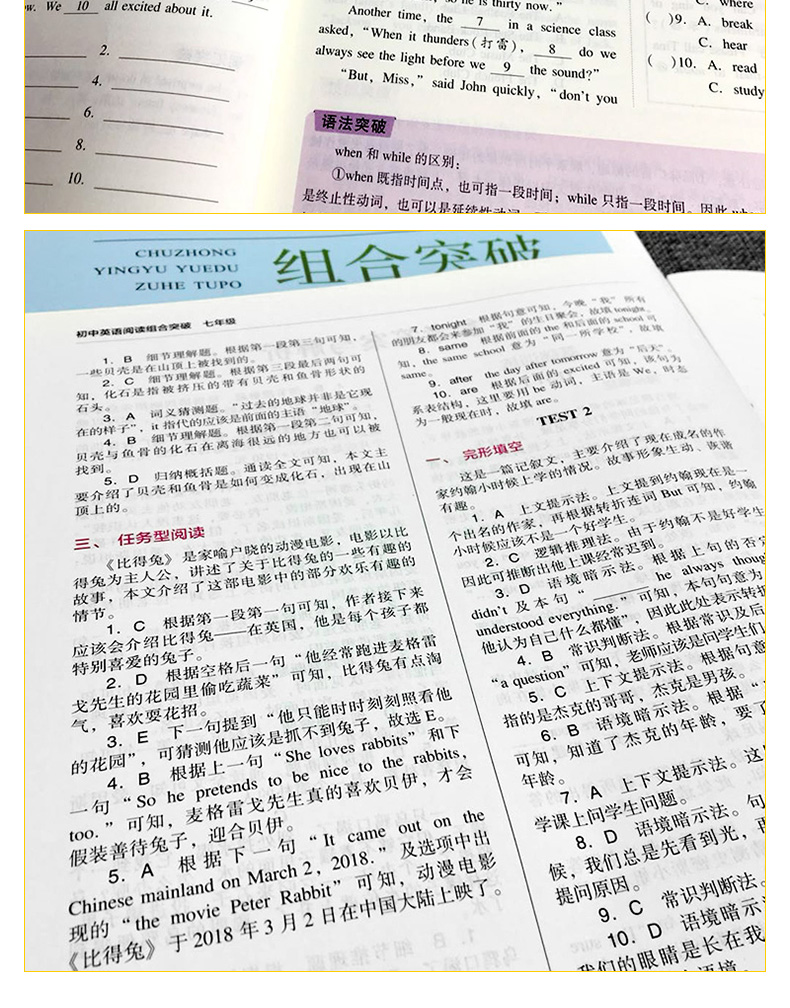 w. We 10 all excited about it.
2.
4.
6.
8.
10.
so he is thirty now."
Another time, the 7 in a science class
asked, "When it thunders (打雷), 8 do we
always see the light before we 9 the sound?"
"But, Miss," said John quickly, "don't you
C. where
( )9. A. break
C. hear
( )10. A. read
C. study
语法突破
when 和 while 的区别:
①when 既指时间点,也可指一段时间;while 只指一段时间。因此
是终止性动词,也可以是延续性动词
CHUZHONG
YINGYU YUEDU
ZUHE TUPO
组合突破
初中英语阅读组合突破 七年级
1. B 细节理解题。根据第一段第三句可知,
一些贝壳是在山顶上被找到的。
2. C 细节理解题。根据第三段最后两句可
知,化石是指被挤压的带有贝壳和鱼骨形状的
石头。
3. A 词义猜测题。“过去的地球并非是它现
在的样子”,it 指代的应该是前面的主语“地球”。
4. B 细节理解题。根据第一段第二句可知,
贝壳与鱼骨的化石在离海很远的地方也可以被
找到。
5. D 归纳概括题。通读全文可知,本文主
要介绍了贝壳和鱼骨是如何变成化石,出现在山
顶上的。
三、 任务型阅读
《比得兔》是家喻户晓的动漫电影,电影以比
得兔为主人公,讲述了关于比得兔的一些有趣的
故事,本文介绍了这部电影中的部分欢乐有趣的
情节。
1. C 根据第一段第一句可知,作者接下来
应该会介绍比得兔——在英国,他是每个孩子都
特别喜爱的兔子。
2. D 根据空格后一句“他经常跑进麦格雷
戈先生的花园里偷吃蔬菜”可知,比得兔有点淘
气,喜欢耍花招。
3. E 下一句提到“他只能时时刻刻照看他
的花园”,可猜测他应该是抓不到兔子,故选 E。
4. B 根据上一句“She loves rabbits”和下
一句“So he pretends to be nice to the rabbits,
too.”可知,麦格雷戈先生真的喜欢贝伊,才会
假装善待兔子,迎合贝伊。
5. A 根据下一句“It came out on the
Chinese mainland on March 2, 2018.”及选项中出
现的“the movie Peter Rabbit”可知,动漫电影
《比得兔》于 2018 年 3 月 2 日在中国大陆上映了。
7. tonight 根据句意可知,今晚“我”所有
的朋友都会来参加“我”的生日聚会,故填 tonight。
8. same 根据前面的 the 和后面的 school 可
知,the same school 意为“同一所学校”,故填
same。
9. after the day after tomorrow 意为“后天”。
10. are 根据后面的 excited 可知,该句为
系表结构,这里要用 be 动词,主语是 We,时态
为一般现在时,故填 are。
TEST 2
一、 完形填空
这是一篇记叙文,主要介绍了现在成名的作
家约翰小时候上学的情况。故事形象生动、诙谐
有趣。
1. A 上文提示法。上文提到约翰现在是一
个出名的作家,再根据转折连词 But 可知,约翰
小时候应该不是一个好学生。
2. C 逻辑推理法。由于约翰不是好学生
因此可推断出他上课经常迟到。
3. D 语境暗示法。根据上句的否定
didn't 及本句“ he always though
understood everything.”可知,本句句意为
他认为自己什么都懂”,因此此处表示转折
4. B 常识判断法。根据常识及后
“a question”可知,老师应该是问学生们
5. C 上下文提示法。根据句意
指的是杰克的哥哥,杰克是男孩。
6. B 语境暗示法。根据“
可知,知道了杰克的年龄,要了
年龄。
7. A 上下文提示法。这
学课上问学生问题。
8. D 语境暗示法。句
候,我们总是先看到光,再
提问原因。
9. C 常识判断法。
10. D 语境暗示
我们的眼睛是长在我